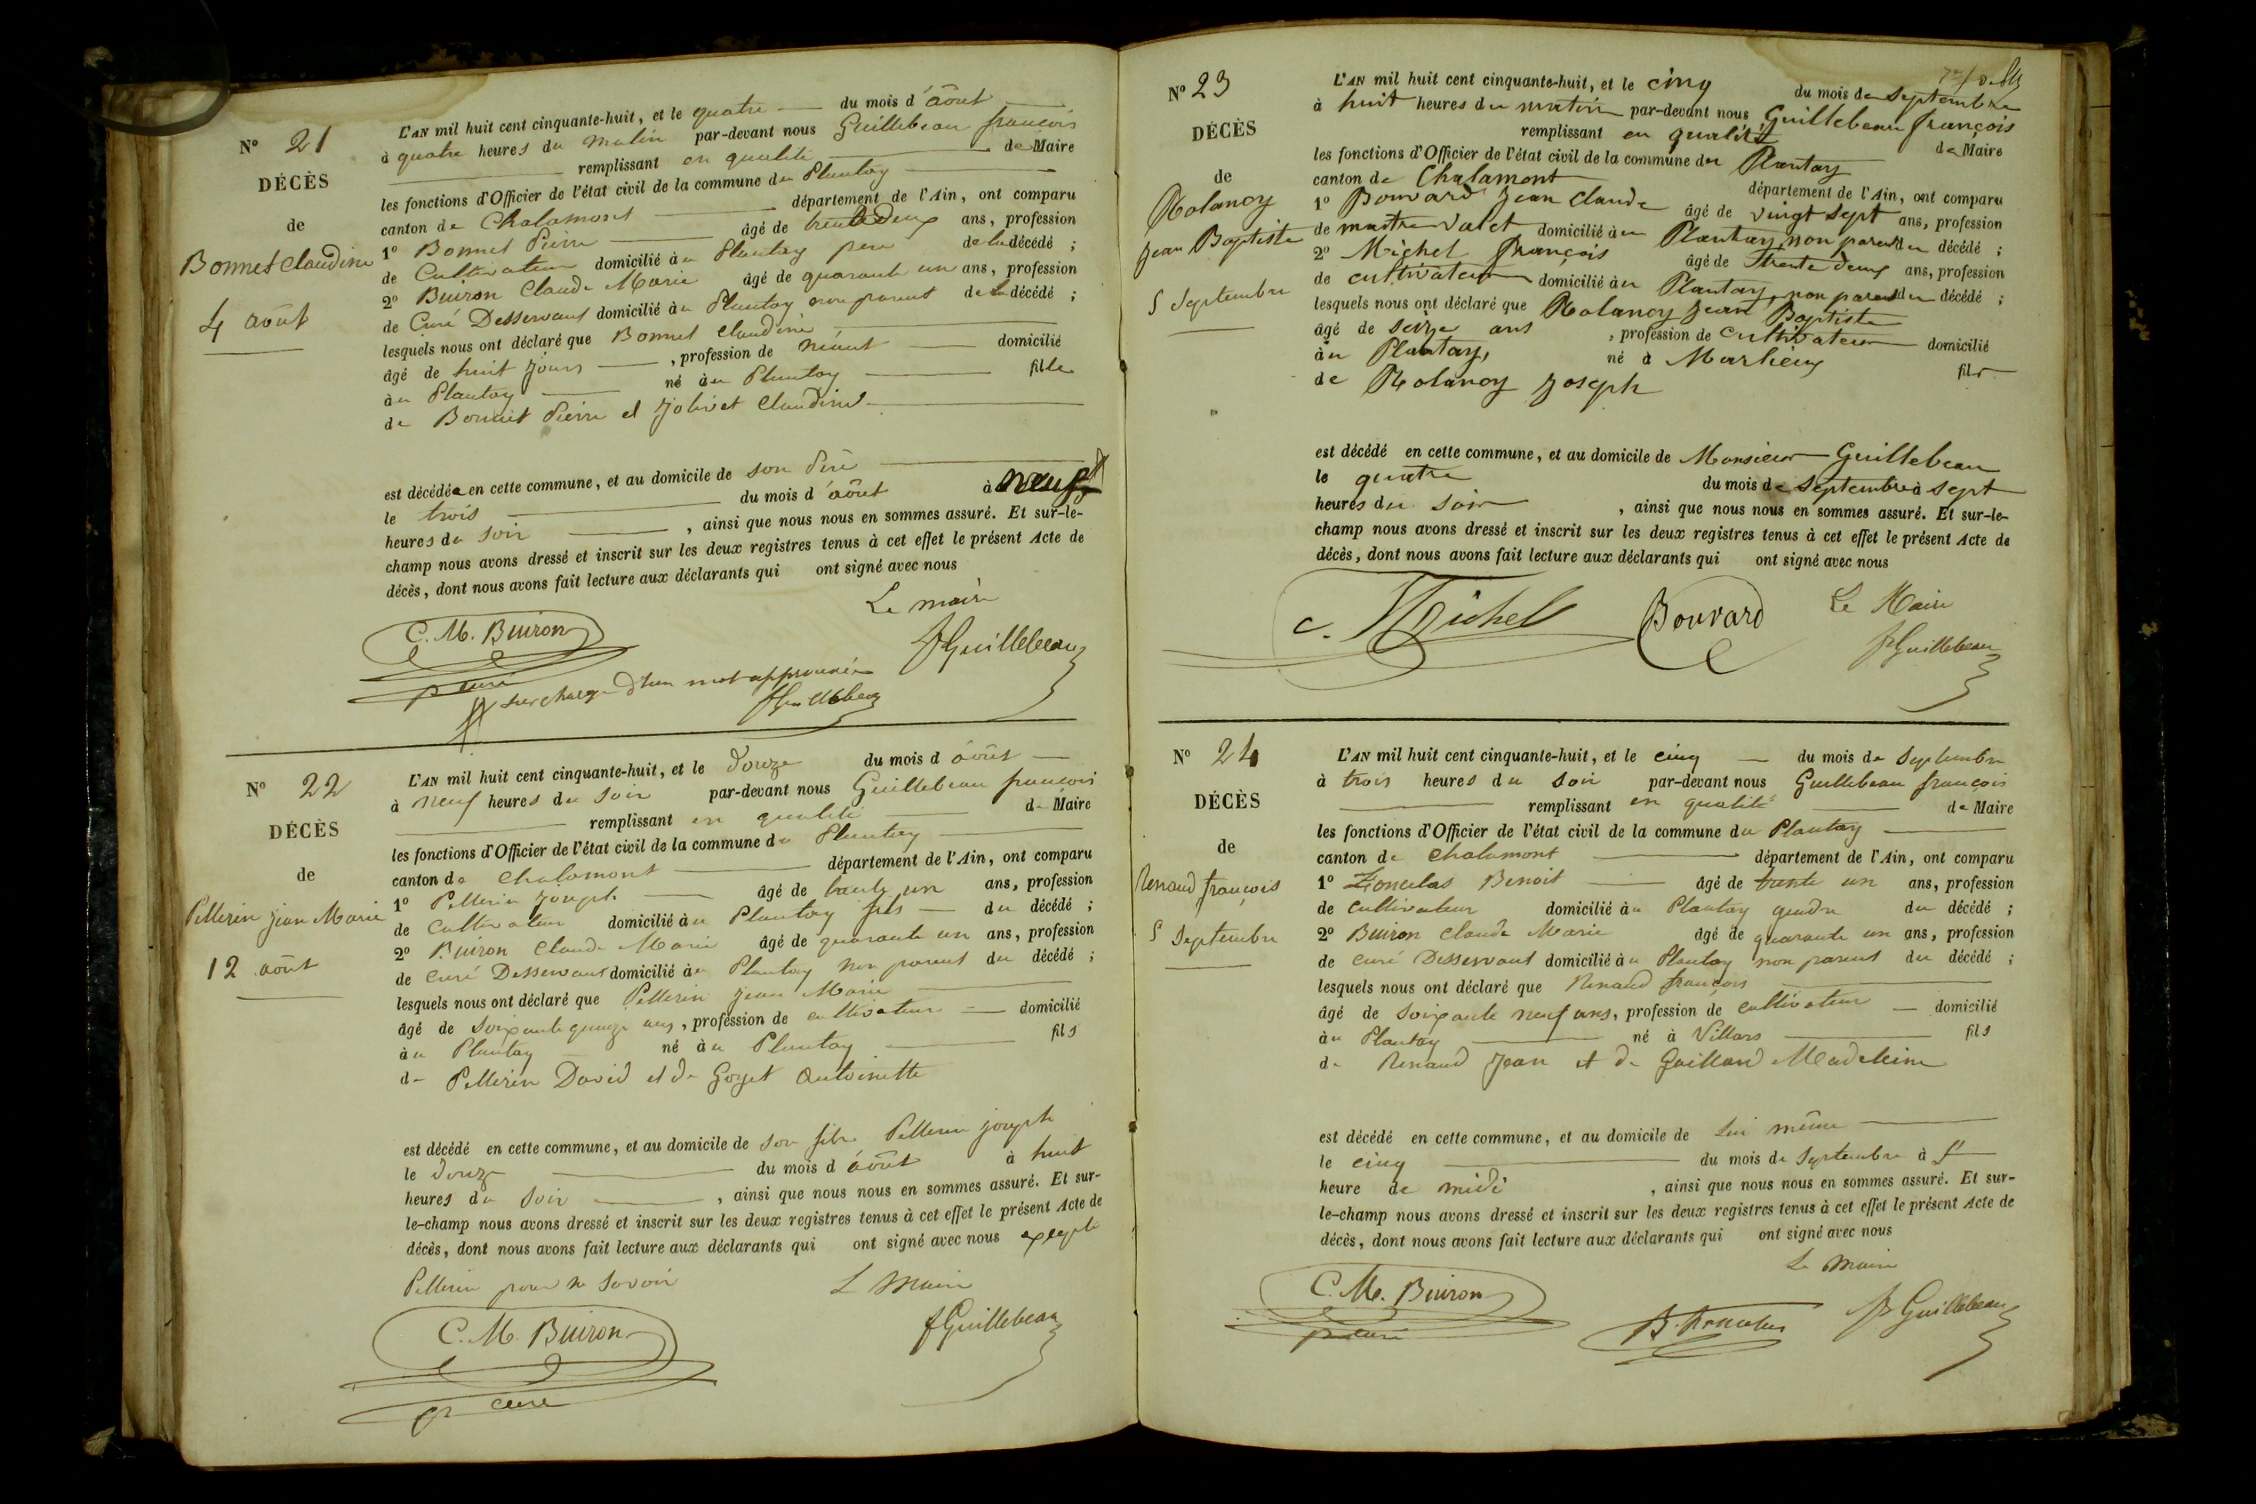 N° 21
DÉCÈS
de
Bonnet Claudine
4 août
L'AN mil huit cent cinquante-huit, et le quatre du mois d'août
à quatre heures du matin par-devant nous Guillebeau françois
remplissant en qualité de Maire
les fonctions d'Officier de l'état civil de la commune du Plantay
canton de Chalamont département de l'Ain, ont comparu
1° Bonnet Pierre âgé de trente deux ans, profession
de Cultivateur domicilié au Plantay père de la décédé ;
2° Buiron Claude Marie âgé de quarante un ans, profession
de Curé Desservant domicilié au Plantay non parent de la décédé ;
lesquels nous ont déclaré que Bonnet Claudine
âgé de huit jours , profession de néant domicilié
au Plantay né au Plantay fille
de Bonnet Pierre et Jolivet Claudine
est décédée en cette commune, et au domicile de son Père
le trois du mois d'août à neuf
heures du soir , ainsi que nous nous en sommes assuré. Et sur-le-
champ nous avons dressé et inscrit sur les deux registres tenus à cet effet le présent Acte de
décès, dont nous avons fait lecture aux déclarants qui ont signé avec nous
Le maire
C. M. Buiron
curé
f Guillebeau
surcharge d'un mot approuvée
f Guillebeau
N° 22
DÉCÈS
de
Pellerin Jean Marie
12 août
L'AN mil huit cent cinquante-huit, et le douze du mois d août
à neuf heures du soir par-devant nous Guillebeau françois
remplissant en qualité de Maire
les fonctions d'Officier de l'état civil de la commune du Plantay
canton de Chalamont département de l'Ain, ont comparu
1° Pellerin Joseph âgé de trente un ans, profession
de Cultivateur domicilié au Plantay fils du décédé ;
2° Buiron Claude Marie âgé de quarante un ans, profession
de curé Desservant domicilié au Plantay non parent du décédé ;
lesquels nous ont déclaré que Pellerin Jean Marie
âgé de soixante quinze ans, profession de cultivateur domicilié
au Plantay né au Plantay fils
de Pellerin David et de Goyet Antoinette
est décédé en cette commune, et au domicile de son fils Pellerin joseph
le douze du mois d août à huit
heures du soir , ainsi que nous nous en sommes assuré. Et sur-
le-champ nous avons dressé et inscrit sur les deux registres tenus à cet effet le présent Acte de
décès, dont nous avons fait lecture aux déclarants qui ont signé avec nous excepté
Pellerin pour ne savoir
L maire
C. M. Buiron
curé
f Guillebeau
N° 23
DÉCÈS
de
Rolancy
Jean Baptiste
5 Septembre
L'AN mil huit cent cinquante-huit, et le cinq du mois de Septembre
à huit heures du matin par-devant nous Guillebeau françois
remplissant en qualité de Maire
les fonctions d'Officier de l'état civil de la commune du Plantay
canton de Chalamont département de l'Ain, ont comparu
1° Bouvard Jean Claude âgé de vingt sept ans, profession
de maitre valet domicilié au Plantay, non parent du décédé ;
2° Michel françois âgé de trente deux ans, profession
de cultivateur domicilié au Plantay, non parent du décédé ;
lesquels nous ont déclaré que Rolancy Jean Baptiste
âgé de seize ans , profession de cultivateur domicilié
au Plantay, né à Marlieux fils
de Rolancy Joseph
est décédé en cette commune, et au domicile de Monsieur Guillebeau
le quatre du mois de Septembre à sept
heures du soir , ainsi que nous nous en sommes assuré. Et sur-le-
champ nous avons dressé et inscrit sur les deux registres tenus à cet effet le présent Acte de
décès, dont nous avons fait lecture aux déclarants qui ont signé avec nous
Michel
Bouvard
Le Maire
f Guillebeau
N° 24
DÉCÈS
de
Renaud françois
5 Septembre
L'AN mil huit cent cinquante-huit, et le cinq du mois de Septembre
à trois heures du soir par-devant nous Guillebeau françois
remplissant en qualité de Maire
les fonctions d'Officier de l'état civil de la commune du Plantay
canton de Chalamont département de l'Ain, ont comparu
1° Benoit âgé de trente un ans, profession
de cultivateur domicilié au Plantay gendre du décédé ;
2° Buiron Claude Marie âgé de quarante un ans, profession
de curé Desservant domicilié au Plantay non parent du décédé ;
lesquels nous ont déclaré que Renaud françois
âgé de soixante neuf ans, profession de cultivateur domicilié
au Plantay né à Villars fils
de Renaud Jean et de Gaillard Madeleine
est décédé en cette commune, et au domicile de lui même
le cinq du mois de Septembre à
heure de midi , ainsi que nous nous en sommes assuré. Et sur-
le-champ nous avons dressé et inscrit sur les deux registres tenus à cet effet le présent Acte de
décès, dont nous avons fait lecture aux déclarants qui ont signé avec nous
Le maire
C. M. Buiron
curé
f Guillebeau